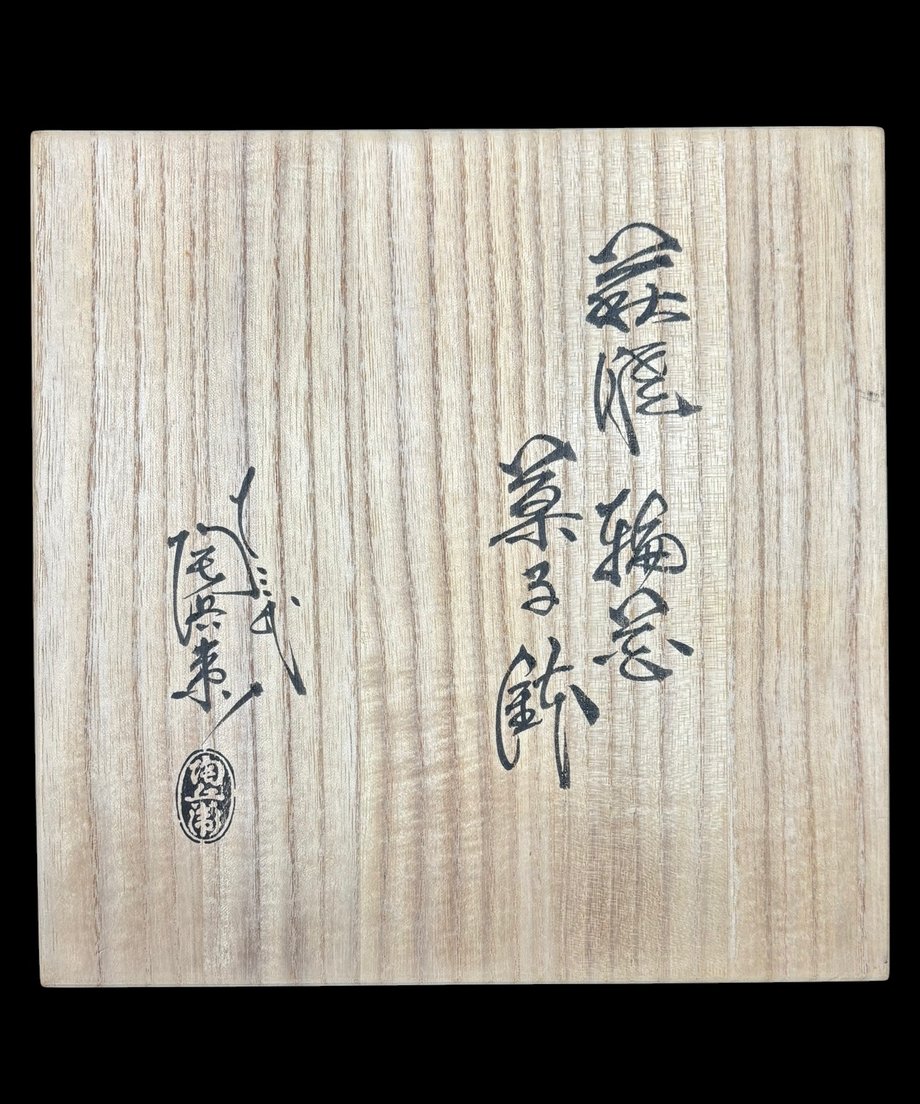 萩焼 輪花
菓子鉢
十三代
陶兵衛
陶兵衛